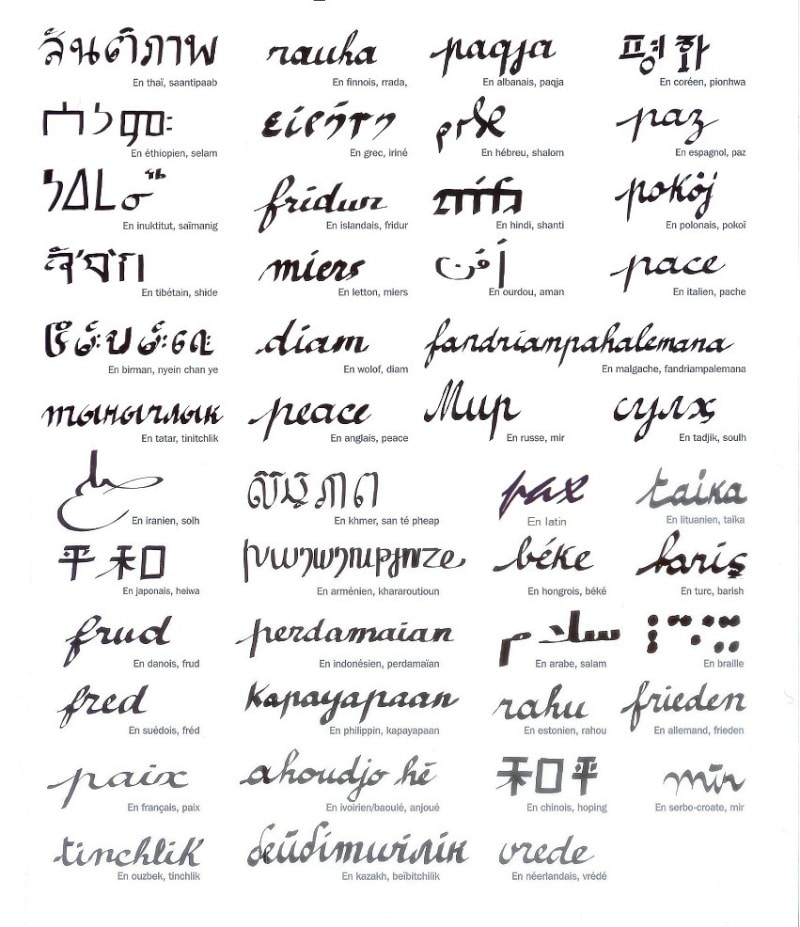 สันติภาพ rauha paqja 평화
En thaï, saantipaab En finnois, rrada, En albanais, paqja En coréen, pionhwa
ειρήνη paz
En éthiopien, selam En grec, iriné En hébreu, shalom En espagnol, paz
fridur pokój
En inuktitut, saïmanig En islandais, fridur En hindi, shanti En polonais, pokoï
miers pace
En tibétain, shide En letton, miers En ourdou, aman En italien, pache
diam fandrianpahalemana
En birman, nyein chan ye En wolof, diam En malgache, fandriampalemana
тынычлык peace Мир сулҳ
En tatar, tinitchlik En anglais, peace En russe, mir En tadjik, soulh
pax taika
En iranien, solh En khmer, san té pheap En latin En lituanien, taïka
平和 béke bariş
En japonais, heiwa En arménien, khararoutioun En hongrois, béké En turc, barish
frud perdamaian سلام
En danois, frud En indonésien, perdamaïan En arabe, salam En braille
fred kapayapaan rahu frieden
En suédois, fréd En philippin, kapayapaan En estonien, rahou En allemand, frieden
paix ahoudjo hé 和平 mir
En français, paix En ivoirien/baoulé, anjoué En chinois, hoping En serbo-croate, mir
tinchlik бейбітшілік vrede
En ouzbek, tinchlik En kazakh, beïbitchilik En néerlandais, vrédé